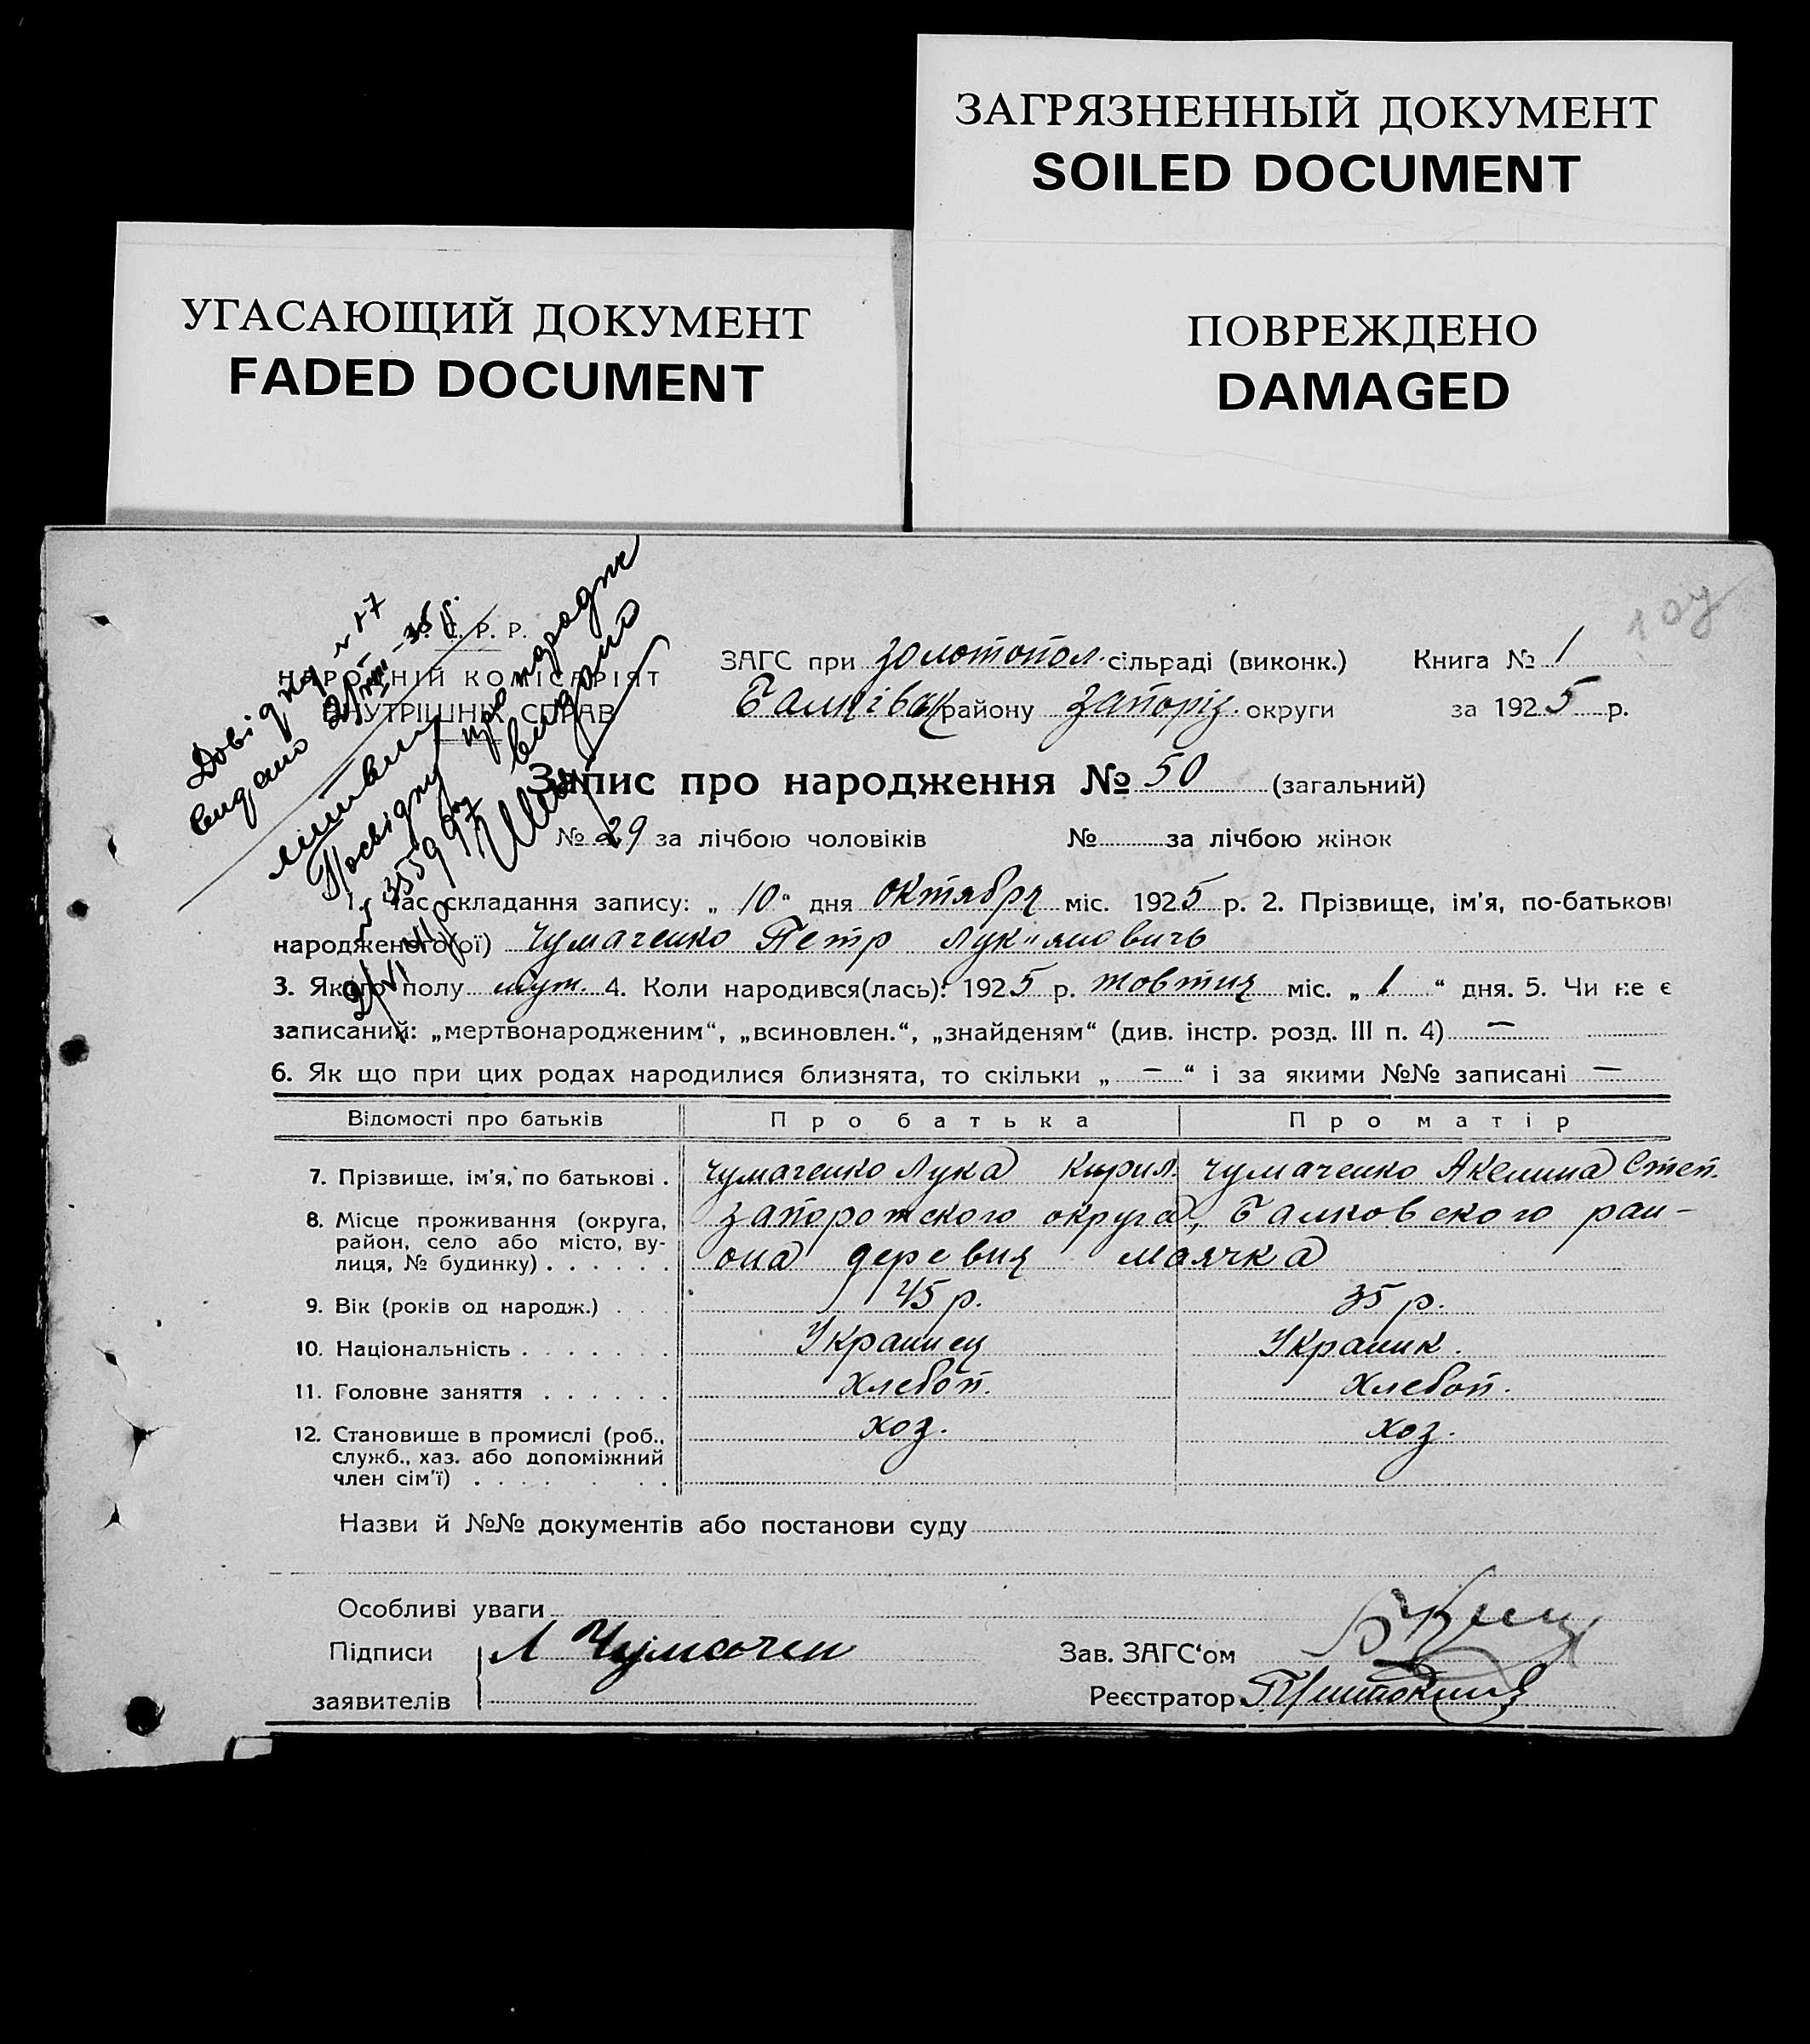 ЗАГРЯЗНЕННЫЙ ДОКУМЕНТ
SOILED DOCUMENT
УГАСАЮЩИЙ ДОКУМЕНТ
FADED DOCUMENT
ПОВРЕЖДЕНО
DAMAGED
107
Довідку №17
видано
35 р.
Р. Р.
НАРОДНІЙ КОМІСАРІЯТ
ВНУТРІШНІХ СПРАВ
видано
ЗАГС при Золотопол. сільраді (виконк.) Книга № 1
Балківськ району Запоріз. округи за 1925 р.
Запис про народження № 50 (загальний)
№ 29 за лічбою чоловіків № за лічбою жінок
1. Час складання запису: „ 10 " дня октября міс. 1925 р. 2. Прізвище, ім'я, по-батькові
народженого(ої) Чумаченко Петр Лук"яновичь
3. Якого полу муж. 4. Коли народився(лась): 1925 р. жовтня міс. „ 1 “ дня. 5. Чи не є
записаний: „мертвонародженим“, „всиновлен.“, „знайденям“ (див. інстр. розд. III п. 4) —
6. Як що при цих родах народилися близнята, то скільки „ — “ і за якими №№ записані —
Відомості про батьків Про батька Про матір
7. Прізвище, ім'я, по батькові . Чумаченко Лука Кирил. Чумаченко Акелина Степ.
8. Місце проживання (округа, район, село або місто, вулиця, № будинку) . . . . . . Запорожского округа, Балковского раи-
она деревня Маячка
9. Вік (років од народж.) . . . 45 р. 35 р.
10. Національність . . . . . . . Украинец Украинк.
11. Головне заняття . . . . . . Хлебоп. Хлебоп.
12. Становище в промислі (роб., служб., хаз. або допоміжний член сім'ї) . . . . . . . хоз. хоз.
Назви й №№ документів або постанови суду
Особливі уваги
Підписи Л Чумачен Зав. ЗАГС‘ом
заявителів Реєстратор